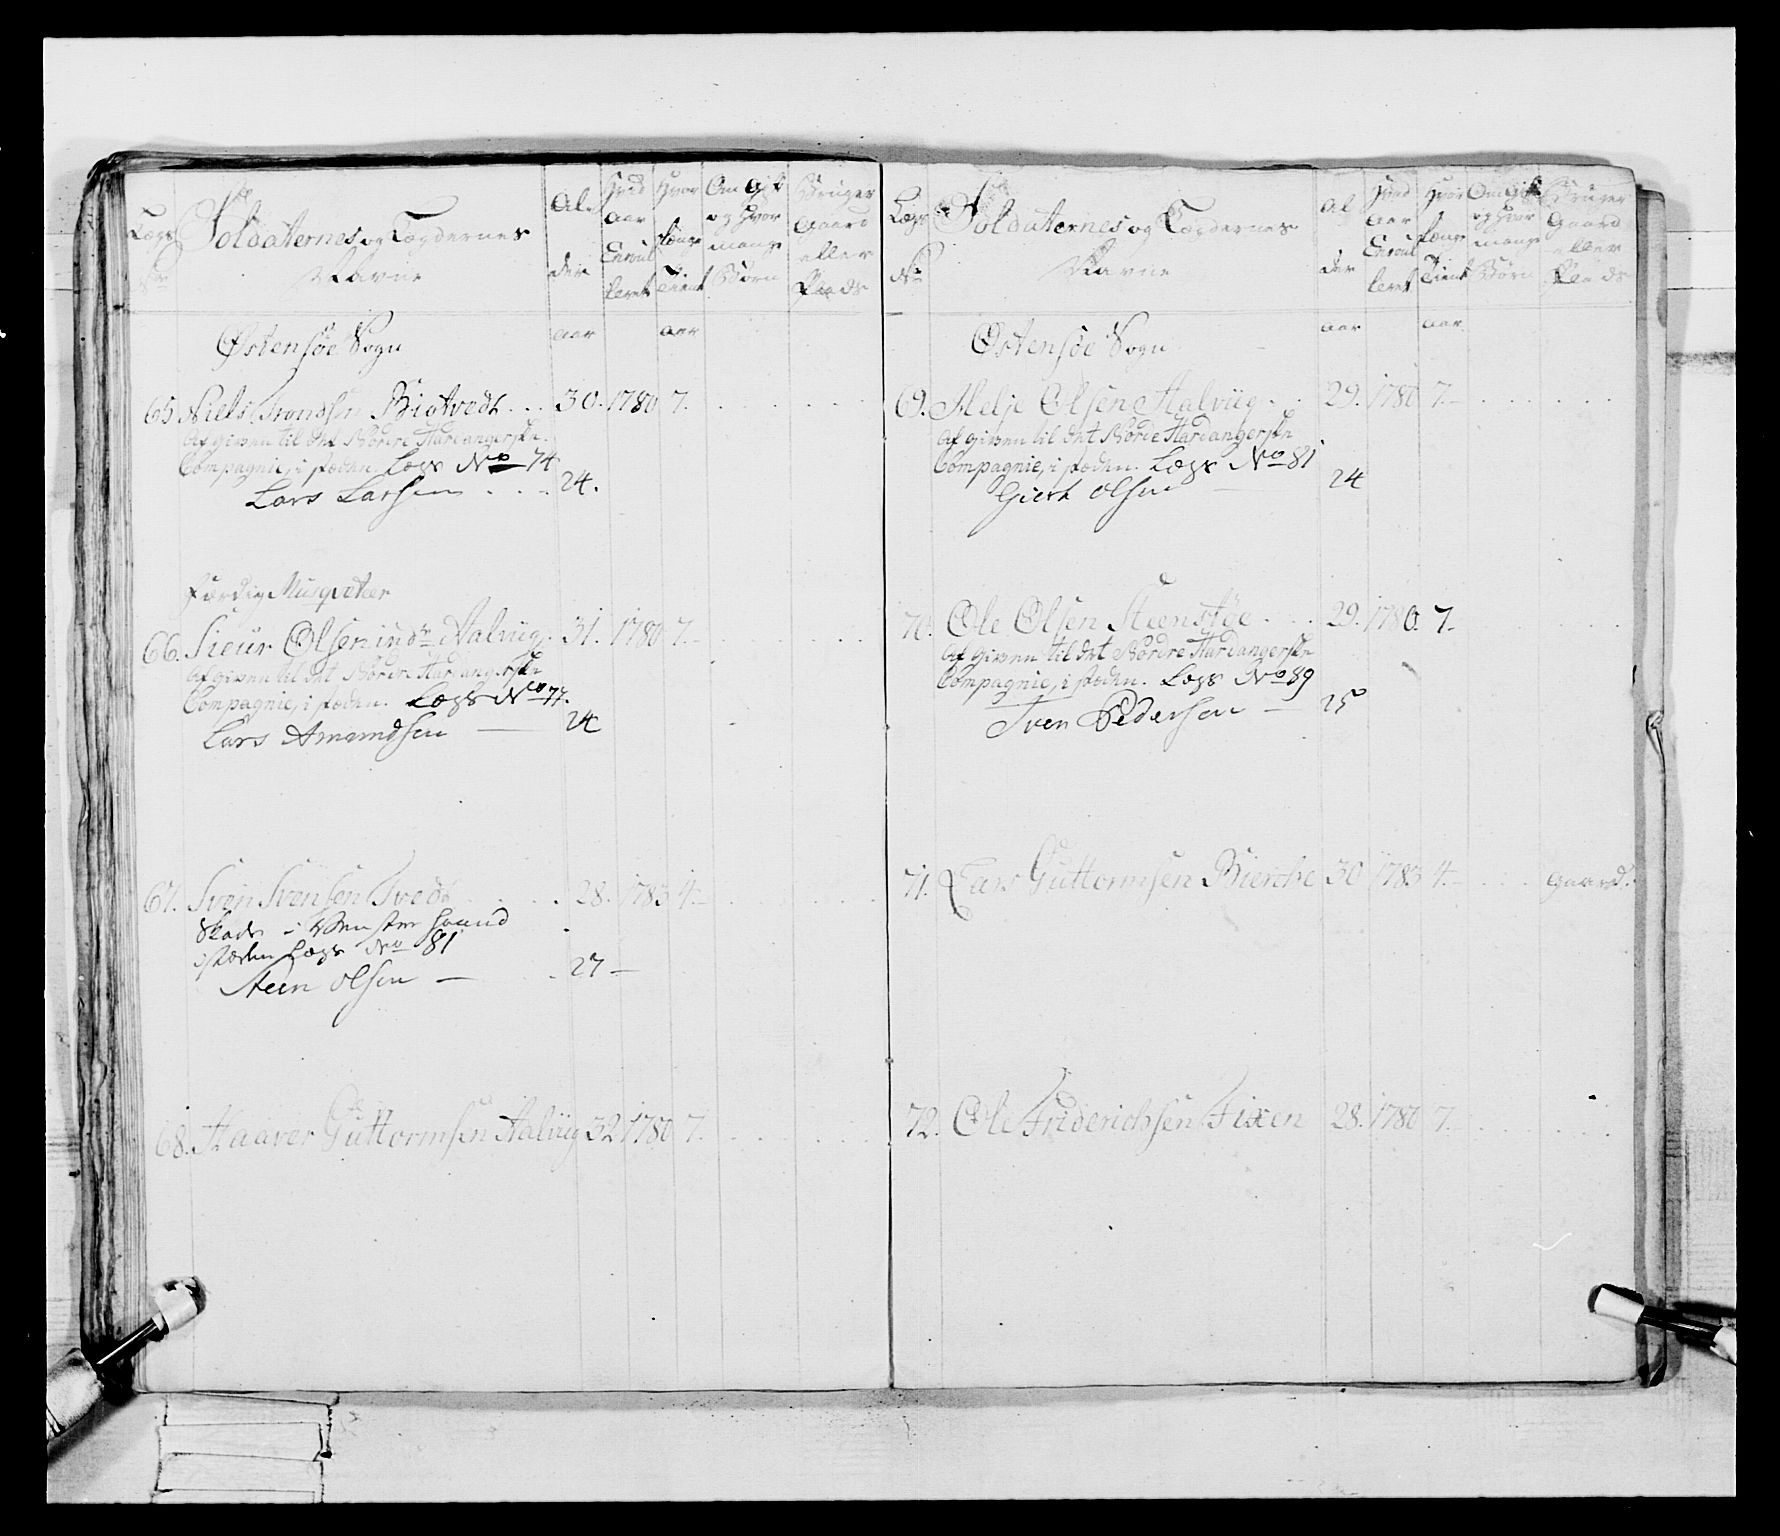 Lægs No
Soldaternes og Lægdernes Navne
Alder
Hvad aar Enroulleret
Hvor længe Tient
Om Gift og hvor mange Børn
Bruger Gaard eller Plads
Østensøe Sogn
aar aar
65. Niels Trondsen Biotvedt . . . 30. 1780 7. . . . .
Afgiven til det Nordre Hardangerske
Compagnie, i stæden Lægs No 74
Lars Larsen . . . 24.
færdig Musqveteer
66. Sieur Olsen indr Aalvug. 31. 1780 7. . . .
Afgiven til det Nordre Hardangerske
Compagnie, i stæden. Lægs No 77.
Lars Amundsen — 24
67. Sven Svensen Tvedt . . . 28. 1783 4. . . .
Skade i Venster Haand
i stæden Lægs No 81
Steen Olsen — 27 —
68. Haaver Guttormsen Aalvug 32 1780 7. . . .
Lægs No
Soldaternes og Lægdernes Navne
Alder
Hvad aar Enroulleret
Hvor længe Tient
Om Gift og hvor mange Børn
Bruger Gaard eller Plads
Østensøe Sogn
aar aar
69. Helje Olsen Aalvug . . 29. 1780 7. . . .
Afgiven til det Nordre Hardangerske
Compagnie, i stæden. Lægs No 81
Giert Olsen — 24
70. Ole Olsen Steenstøe . . . 29. 1780. 7. . . .
Afgiven til det Nordre Hardangerske
Compagnie, i stæden. Lægs No 89
Sven Pedersen — 25
71. Lars Guttormsen Bierche 30 1783 4. . . . Gaard.
72. Ole Friderichsen Fixen 28. 1780 7. . . .